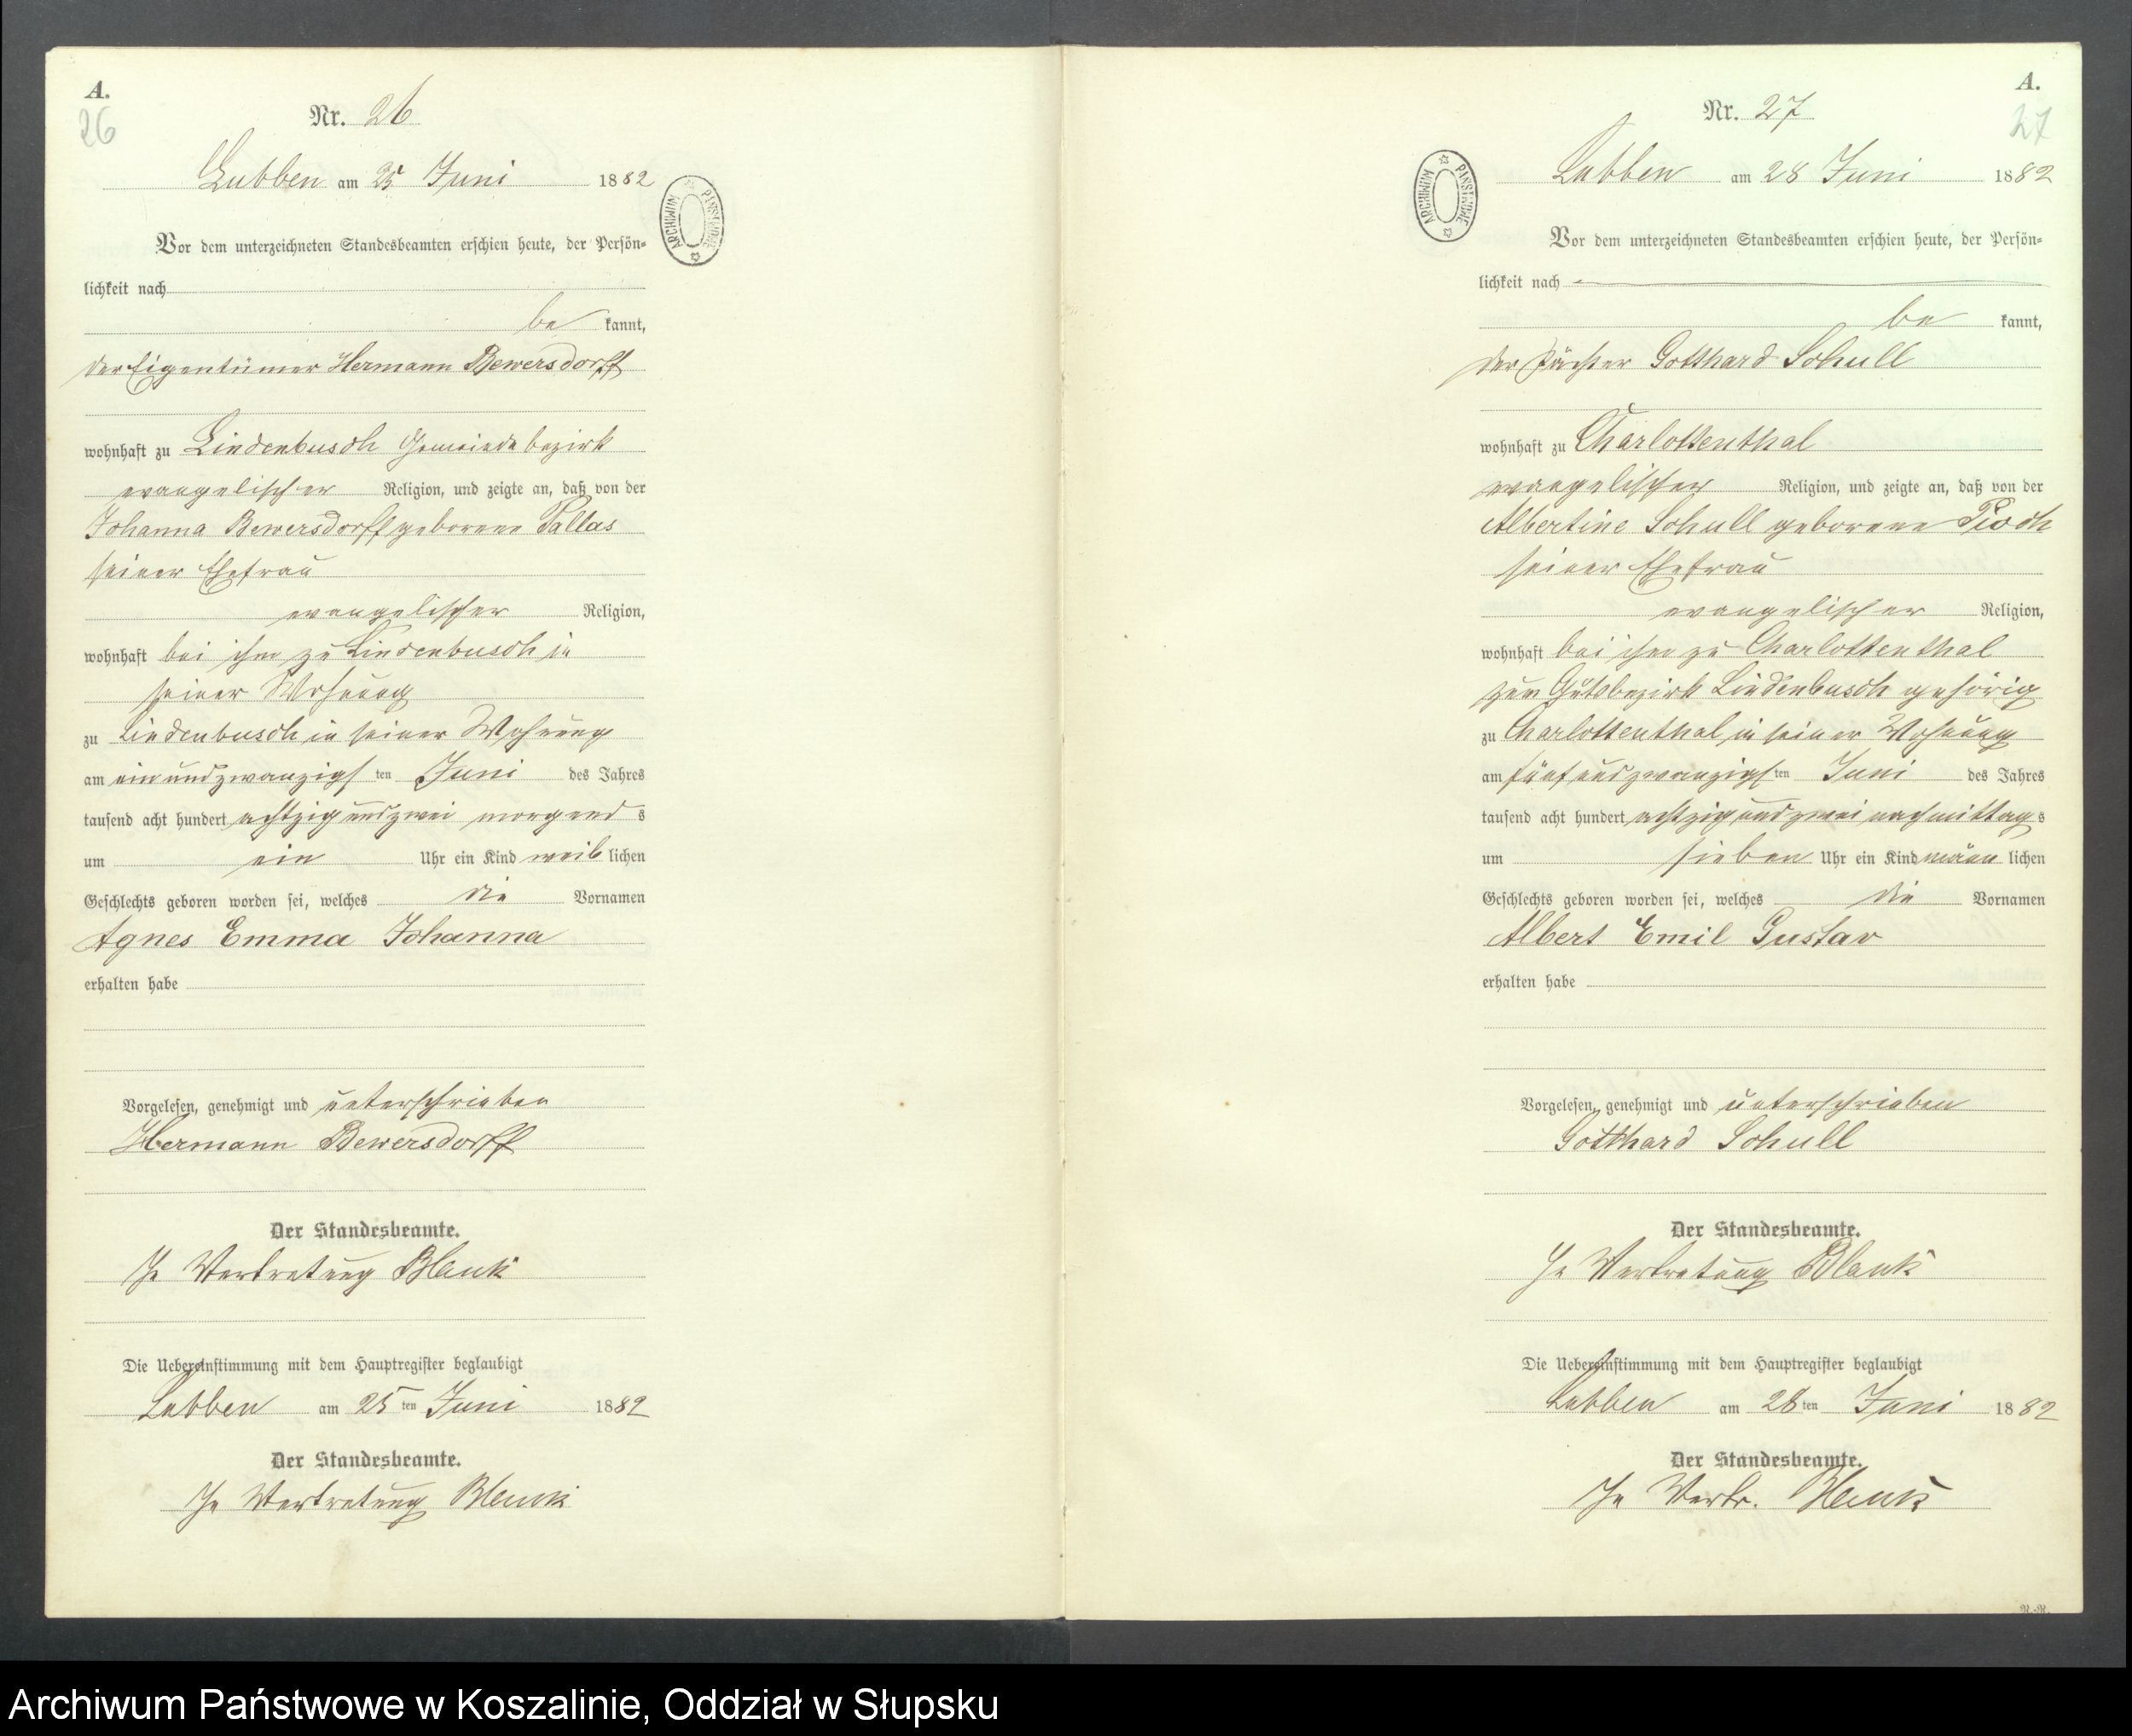 A.
26
Nr. 26
Lubben am 25 Juni 1882
ARCHIWUM PAŃSTWOWE
Vor dem unterzeichneten Standesbeamten erschien heute, der Persön-
lichkeit nach
be kannt,
der Eigentümer Hermann Bewersdorff
wohnhaft zu Lindenbusch Gemeindebezirk
evangelischer Religion, und zeigte an, daß von der
Johanna Bewersdorff geborene Pallas
seiner Ehefrau
evangelischer Religion,
wohnhaft bei ihm zu Lindenbusch in
seiner Wohnung
zu Lindenbusch in seiner Wohnung
am ein und zwanzigsten Juni des Jahres
tausend acht hundert achtzig und zwei morgends
um ein Uhr ein Kind weiblichen
Geschlechts geboren worden sei, welches die Vornamen
Agnes Emma Johanna
erhalten habe
Vorgelesen, genehmigt und unterschrieben
Hermann Bewersdorff
Der Standesbeamte.
In Vertretung Blank
Die Uebereinstimmung mit dem Hauptregister beglaubigt
Lubben am 25ten Juni 1882
Der Standesbeamte.
In Vertretung Blank
A.
27
Nr. 27
Lubben am 28 Juni 1882
ARCHIWUM PAŃSTWOWE
Vor dem unterzeichneten Standesbeamten erschien heute, der Persön-
lichkeit nach
be kannt,
der Pächter Gotthard Schull
wohnhaft zu Charlottenthal
evangelischer Religion, und zeigte an, daß von der
Albertine Schull geborene Pioch
seiner Ehefrau
evangelischer Religion,
wohnhaft bei ihm zu Charlottenthal
zum Gutsbezirk Lindenbusch gehörig
zu Charlottenthal in seiner Wohnung
am fünf und zwanzigsten Juni des Jahres
tausend acht hundert achtzig und zwei nachmittags
um sieben Uhr ein Kind männlichen
Geschlechts geboren worden sei, welches die Vornamen
Albert Emil Gustav
erhalten habe
Vorgelesen, genehmigt und unterschrieben
Gotthard Schull
Der Standesbeamte.
In Vertretung Blank
Die Uebereinstimmung mit dem Hauptregister beglaubigt
Lubben am 28ten Juni 1882
Der Standesbeamte.
In Vertr. Blank
Archiwum Państwowe w Koszalinie, Oddział w Słupsku